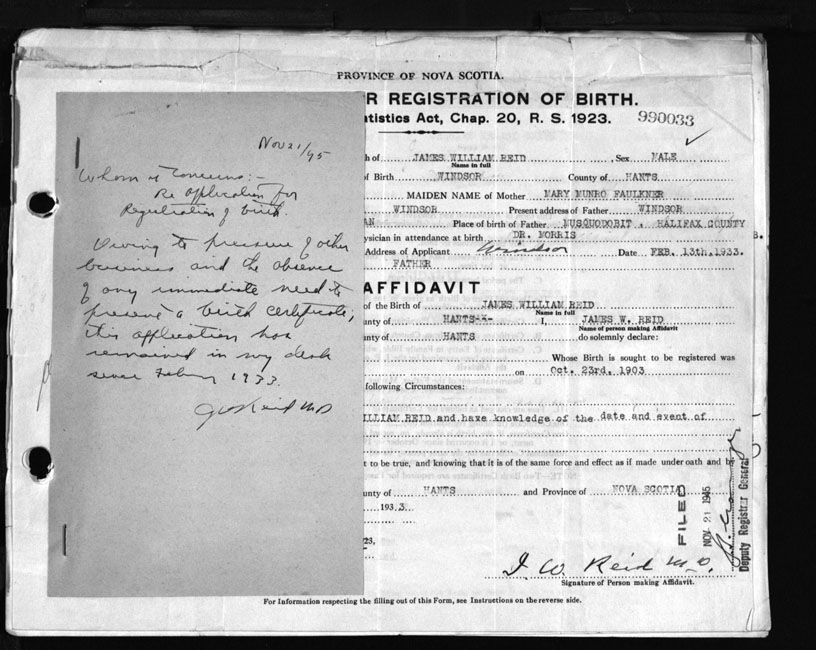 PROVINCE OF NOVA SCOTIA.
R REGISTRATION OF BIRTH.
tatistics Act, Chap. 20, R. S. 1923. 990033
h of JAMES WILLIAM REID, Sex MALE
Name in full
of Birth WINDSOR County of HANTS
MAIDEN NAME of Mother MARY MUNRO FAULKNER
WINDSOR Present address of Father WINDSOR
AN Place of birth of Father MUSQUODOBIT, HALIFAX COUNTY
ysician in attendance at birth DR. MORRIS B.
Address of Applicant Windsor Date FEB. 13th.1933.
FATHER
AFFIDAVIT
of the Birth of JAMES WILLIAM REID
Name in full
unty of HANTS I, JAMES W. REID
Name of person making Affidavit
nty of HANTS do solemnly declare:
Whose Birth is sought to be registered was
on Oct. 23rd. 1903
following Circumstances:
ILLIAM REID and have knowledge of the date and event of
t to be true, and knowing that it is of the same force and effect as if made under oath and b
unty of HANTS and Province of NOVA SCOTIA
1933.
23,
J. W. Reid M.D.
Signature of Person making Affidavit.
For Information respecting the filling out of this Form, see Instructions on the reverse side.
FILED
NOV 21 1945
Deputy Registrar General
Nov 21/45
Whom it Concerns:-
Re Application for
Registration of birth.
Owing to pressure of other
business and the absence
of any immediate need to
present a birth certificate,
this application has
remained in my desk
since 1933.
J W Reid MD